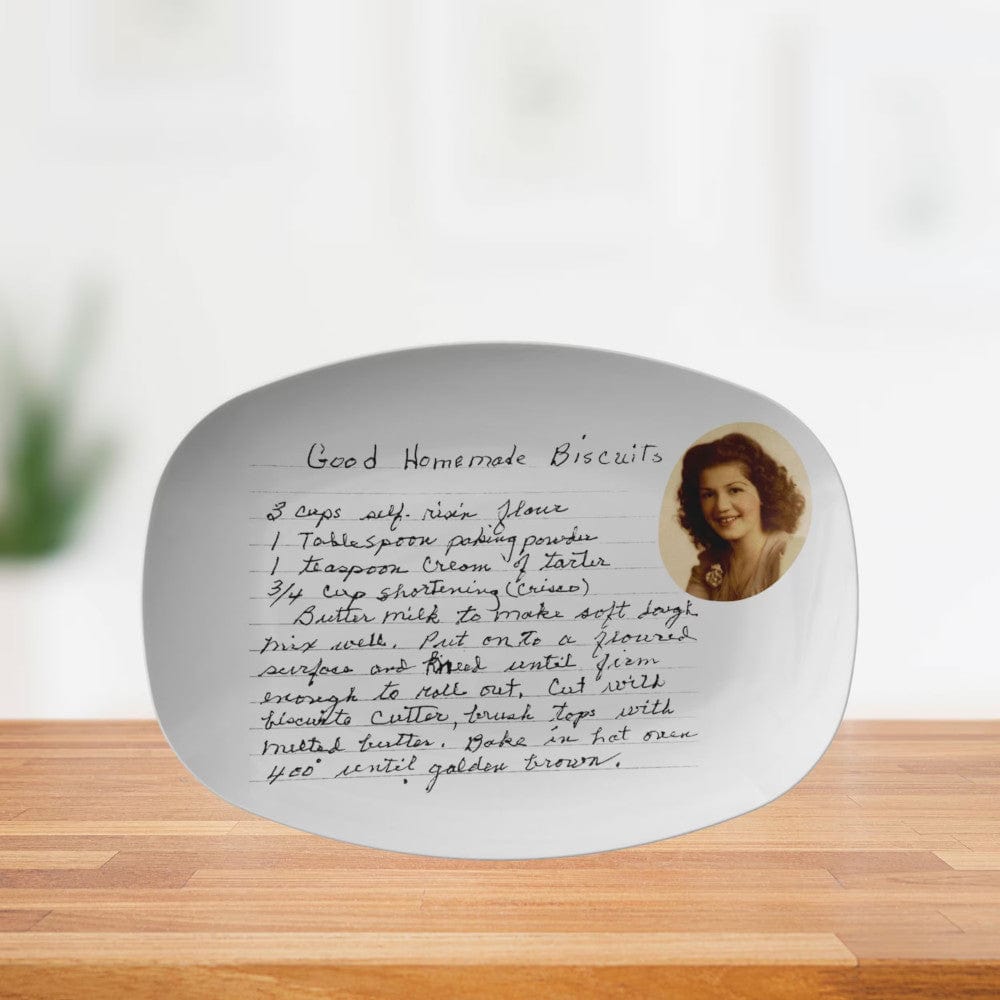 Good Homemade Biscuits
3 cups self-risin flour
1 Tablespoon baking powder
1 teaspoon Cream of tarter
3/4 cup shortening (Crisco)
Butter milk to make soft dough
mix well. Put onto a floured
surface and kneed until firm
enough to roll out. Cut with
biscuits cutter, brush tops with
melted butter. Bake in hot oven
400° until golden brown.